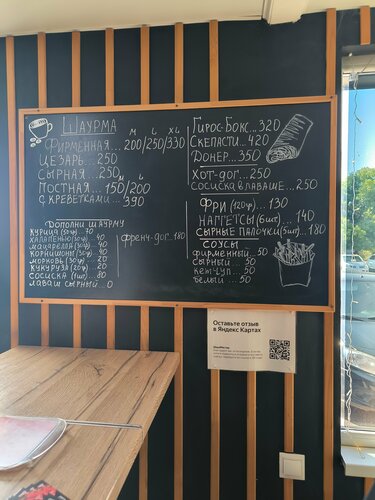 Шаурма
M L XL
Фирменная...200/250/330
Цезарь...250
Сырная...250
M L
Постная...150/200
с креветками...390
Дополни шаурму
курица (50гр) 70
халапеньо (30гр) .. 40
моцарелла (30гр) .. 40
корнишоны (30гр) .. 40
морковь (30гр) ... 20
кукуруза (20гр) .. 20
сосиска (1шт) .. 80
лаваш сырный .. 0
френч-дог..180
Гирос-Бокс...320
Скепасти...420
Донер...350
Хот-дог...250
Сосиска в лаваше...250
Фри (120гр)...130
Наггетсы (6шт)...140
Сырные палочки (5шт)...180
Соусы
фирменный 50
сырный ... 50
кетчуп .. 50
белый .. 50
Оставьте отзыв
в Яндекс Картах